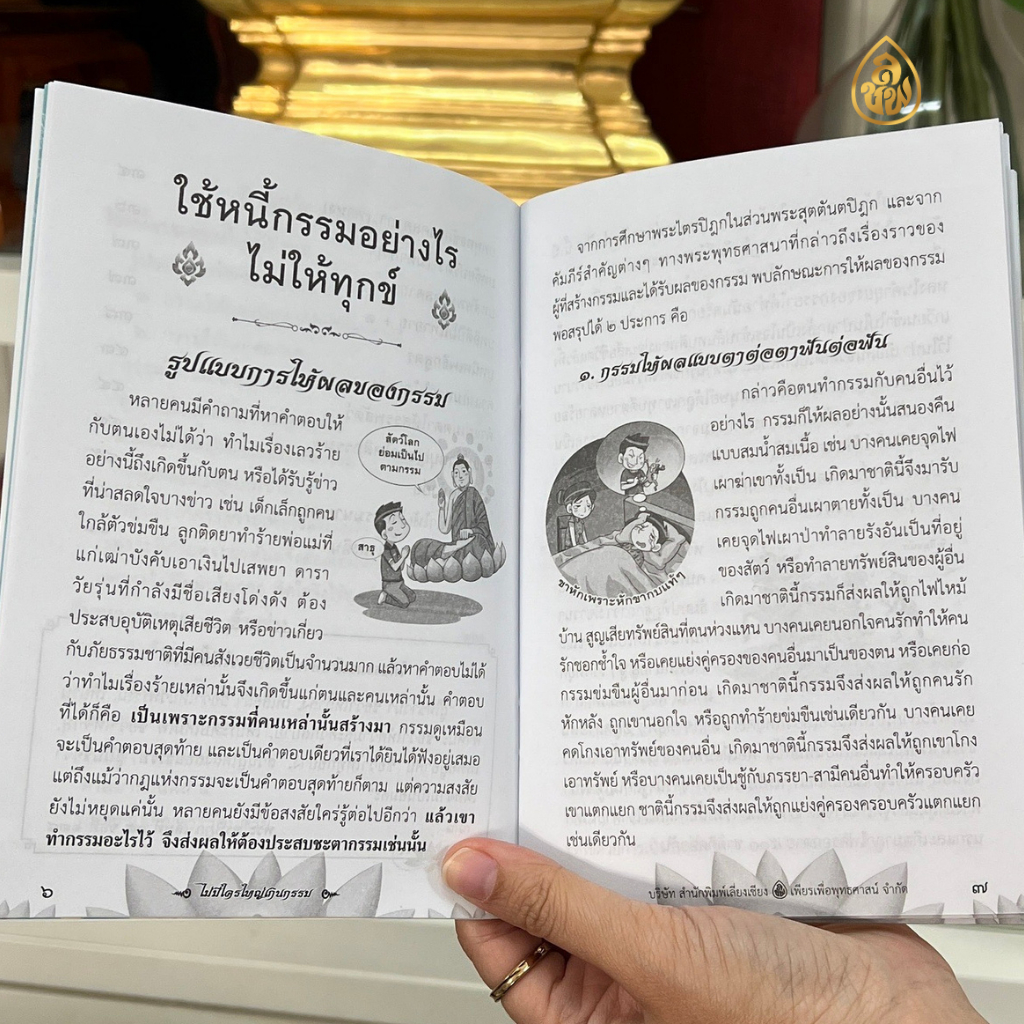 ใช้หนี้กรรมอย่างไร
ไม่ให้ทุกข์
รูปแบบการให้ผลของกรรม
หลายคนมีคำถามที่หาคำตอบให้
กับตนเองไม่ได้ว่า ทำไมเรื่องเลวร้าย
อย่างนี้ถึงเกิดขึ้นกับตน หรือได้รับรู้ข่าว
ที่น่าสลดใจบางข่าว เช่น เด็กเล็กถูกคน
ใกล้ตัวข่มขืน ลูกติดยาทำร้ายพ่อแม่ที่
แก่เฒ่าบังคับเอาเงินไปเสพยา ดารา
วัยรุ่นที่กำลังมีชื่อเสียงโด่งดัง ต้อง
ประสบอุบัติเหตุเสียชีวิต หรือข่าวเกี่ยว
กับภัยธรรมชาติที่มีคนสังเวยชีวิตเป็นจำนวนมาก แล้วหาคำตอบไม่ได้
ว่าทำไมเรื่องร้ายเหล่านั้นจึงเกิดขึ้นแก่ตนและคนเหล่านั้น คำตอบ
ที่ได้ก็คือ เป็นเพราะกรรมที่คนเหล่านั้นสร้างมา กรรมดูเหมือน
จะเป็นคำตอบสุดท้าย และเป็นคำตอบเดียวที่เราได้ยินได้ฟังอยู่เสมอ
แต่ถึงแม้ว่ากฎแห่งกรรมจะเป็นคำตอบสุดท้ายก็ตาม แต่ความสงสัย
ยังไม่หยุดแค่นั้น หลายคนยังมีข้อสงสัยใคร่รู้ต่อไปอีกว่า แล้วเขา
ทำกรรมอะไรไว้ จึงส่งผลให้ต้องประสบชะตากรรมเช่นนั้น
สัตว์โลก
ย่อมเป็นไป
ตามกรรม
สาธุ
๖
ไม่มีใครใหญ่เกินกรรม
จากการศึกษาพระไตรปิฎกในส่วนพระสุตตันตปิฎก และจาก
คัมภีร์สำคัญต่างๆ ทางพระพุทธศาสนาที่กล่าวถึงเรื่องราวของ
ผู้ที่สร้างกรรมและได้รับผลของกรรม พบลักษณะการให้ผลของกรรม
พอสรุปได้ ๒ ประการ คือ
๑. กรรมให้ผลแบบตาต่อตาฟันต่อฟัน
กล่าวคือตนทำกรรมกับคนอื่นไว้
อย่างไร กรรมก็ให้ผลอย่างนั้นสนองคืน
แบบสมน้ำสมเนื้อ เช่น บางคนเคยจุดไฟ
เผาฆ่าเขาทั้งเป็น เกิดมาชาตินี้จึงมารับ
กรรมถูกคนอื่นเผาตายทั้งเป็น บางคน
เคยจุดไฟเผาป่าทำลายรังอันเป็นที่อยู่
ของสัตว์ หรือทำลายทรัพย์สินของผู้อื่น
เกิดมาชาตินี้กรรมก็ส่งผลให้ถูกไฟไหม้
บ้าน สูญเสียทรัพย์สินที่ตนห่วงแหน บางคนเคยนอกใจคนรักทำให้คน
รักชอกช้ำใจ หรือเคยแย่งคู่ครองของคนอื่นมาเป็นของตน หรือเคยก่อ
กรรมข่มขืนผู้อื่นมาก่อน เกิดมาชาตินี้กรรมจึงส่งผลให้ถูกคนรัก
หักหลัง ถูกเขานอกใจ หรือถูกทำร้ายข่มขืนเช่นเดียวกัน บางคนเคย
คดโกงเอาทรัพย์ของคนอื่น เกิดมาชาตินี้กรรมจึงส่งผลให้ถูกเขาโกง
เอาทรัพย์ หรือบางคนเคยเป็นชู้กับภรรยา-สามีคนอื่นทำให้ครอบครัว
เขาแตกแยก ชาตินี้กรรมจึงส่งผลให้ถูกแย่งคู่ครองครอบครัวแตกแยก
เช่นเดียวกัน
ขาหักเพราะหักขากบแท้ๆ
บริษัท สำนักพิมพ์เลี่ยงเชียง เพียรเพื่อพุทธศาสน์ จำกัด
๗